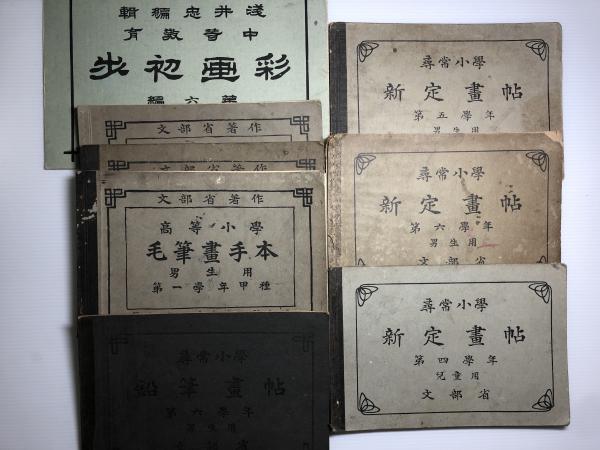 淺井忠編輯
中等敎育
彩画初步
第六編
文部省著作
文部省著作
文部省著作
高等小學
毛筆畫手本
男生用
第一學年甲種
尋常小學
鉛筆畫帖
第六學年
男生用
文部省
尋常小學
新定畫帖
第五學年
男生用
尋常小學
新定畫帖
第六學年
男生用
文部省
尋常小學
新定畫帖
第四學年
兒童用
文部省